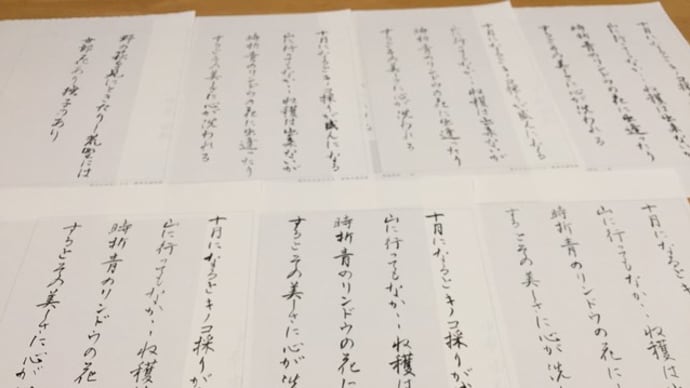 十月になるとキノコ採り
山に行ってもなか〱収穫は出来ないが
時折青のリンドウの花に出逢ったり
するとその美しさに心が洗われる
十月になるとキノコ採りが盛んになる
山に行ってもなか〱収穫は出来ないが
時折青のリンドウの花に出逢ったり
するとその美しさに心が洗われる
十月になるとキノコ採りが盛んになる
山に行ってもなか〱収穫は出来ないが
時折青のリンドウの花に出逢ったり
するとその美しさに心が洗われる
野の萩を見にときたりし荒野には
女郎花あり撫子のあり
十月になるとキ
山に行ってもなか〱収穫
時折青のリンドウの花に
するとその美しさに心が洗
十月になるとキノコ採りが
山に行ってもなか〱収穫は
時折青のリンドウの花に
するとその美しさに心が洗
十月になるとキノコ採りが
山に行ってもなか〱収穫は
時折青のリンドウの花
するとその美しさに心が